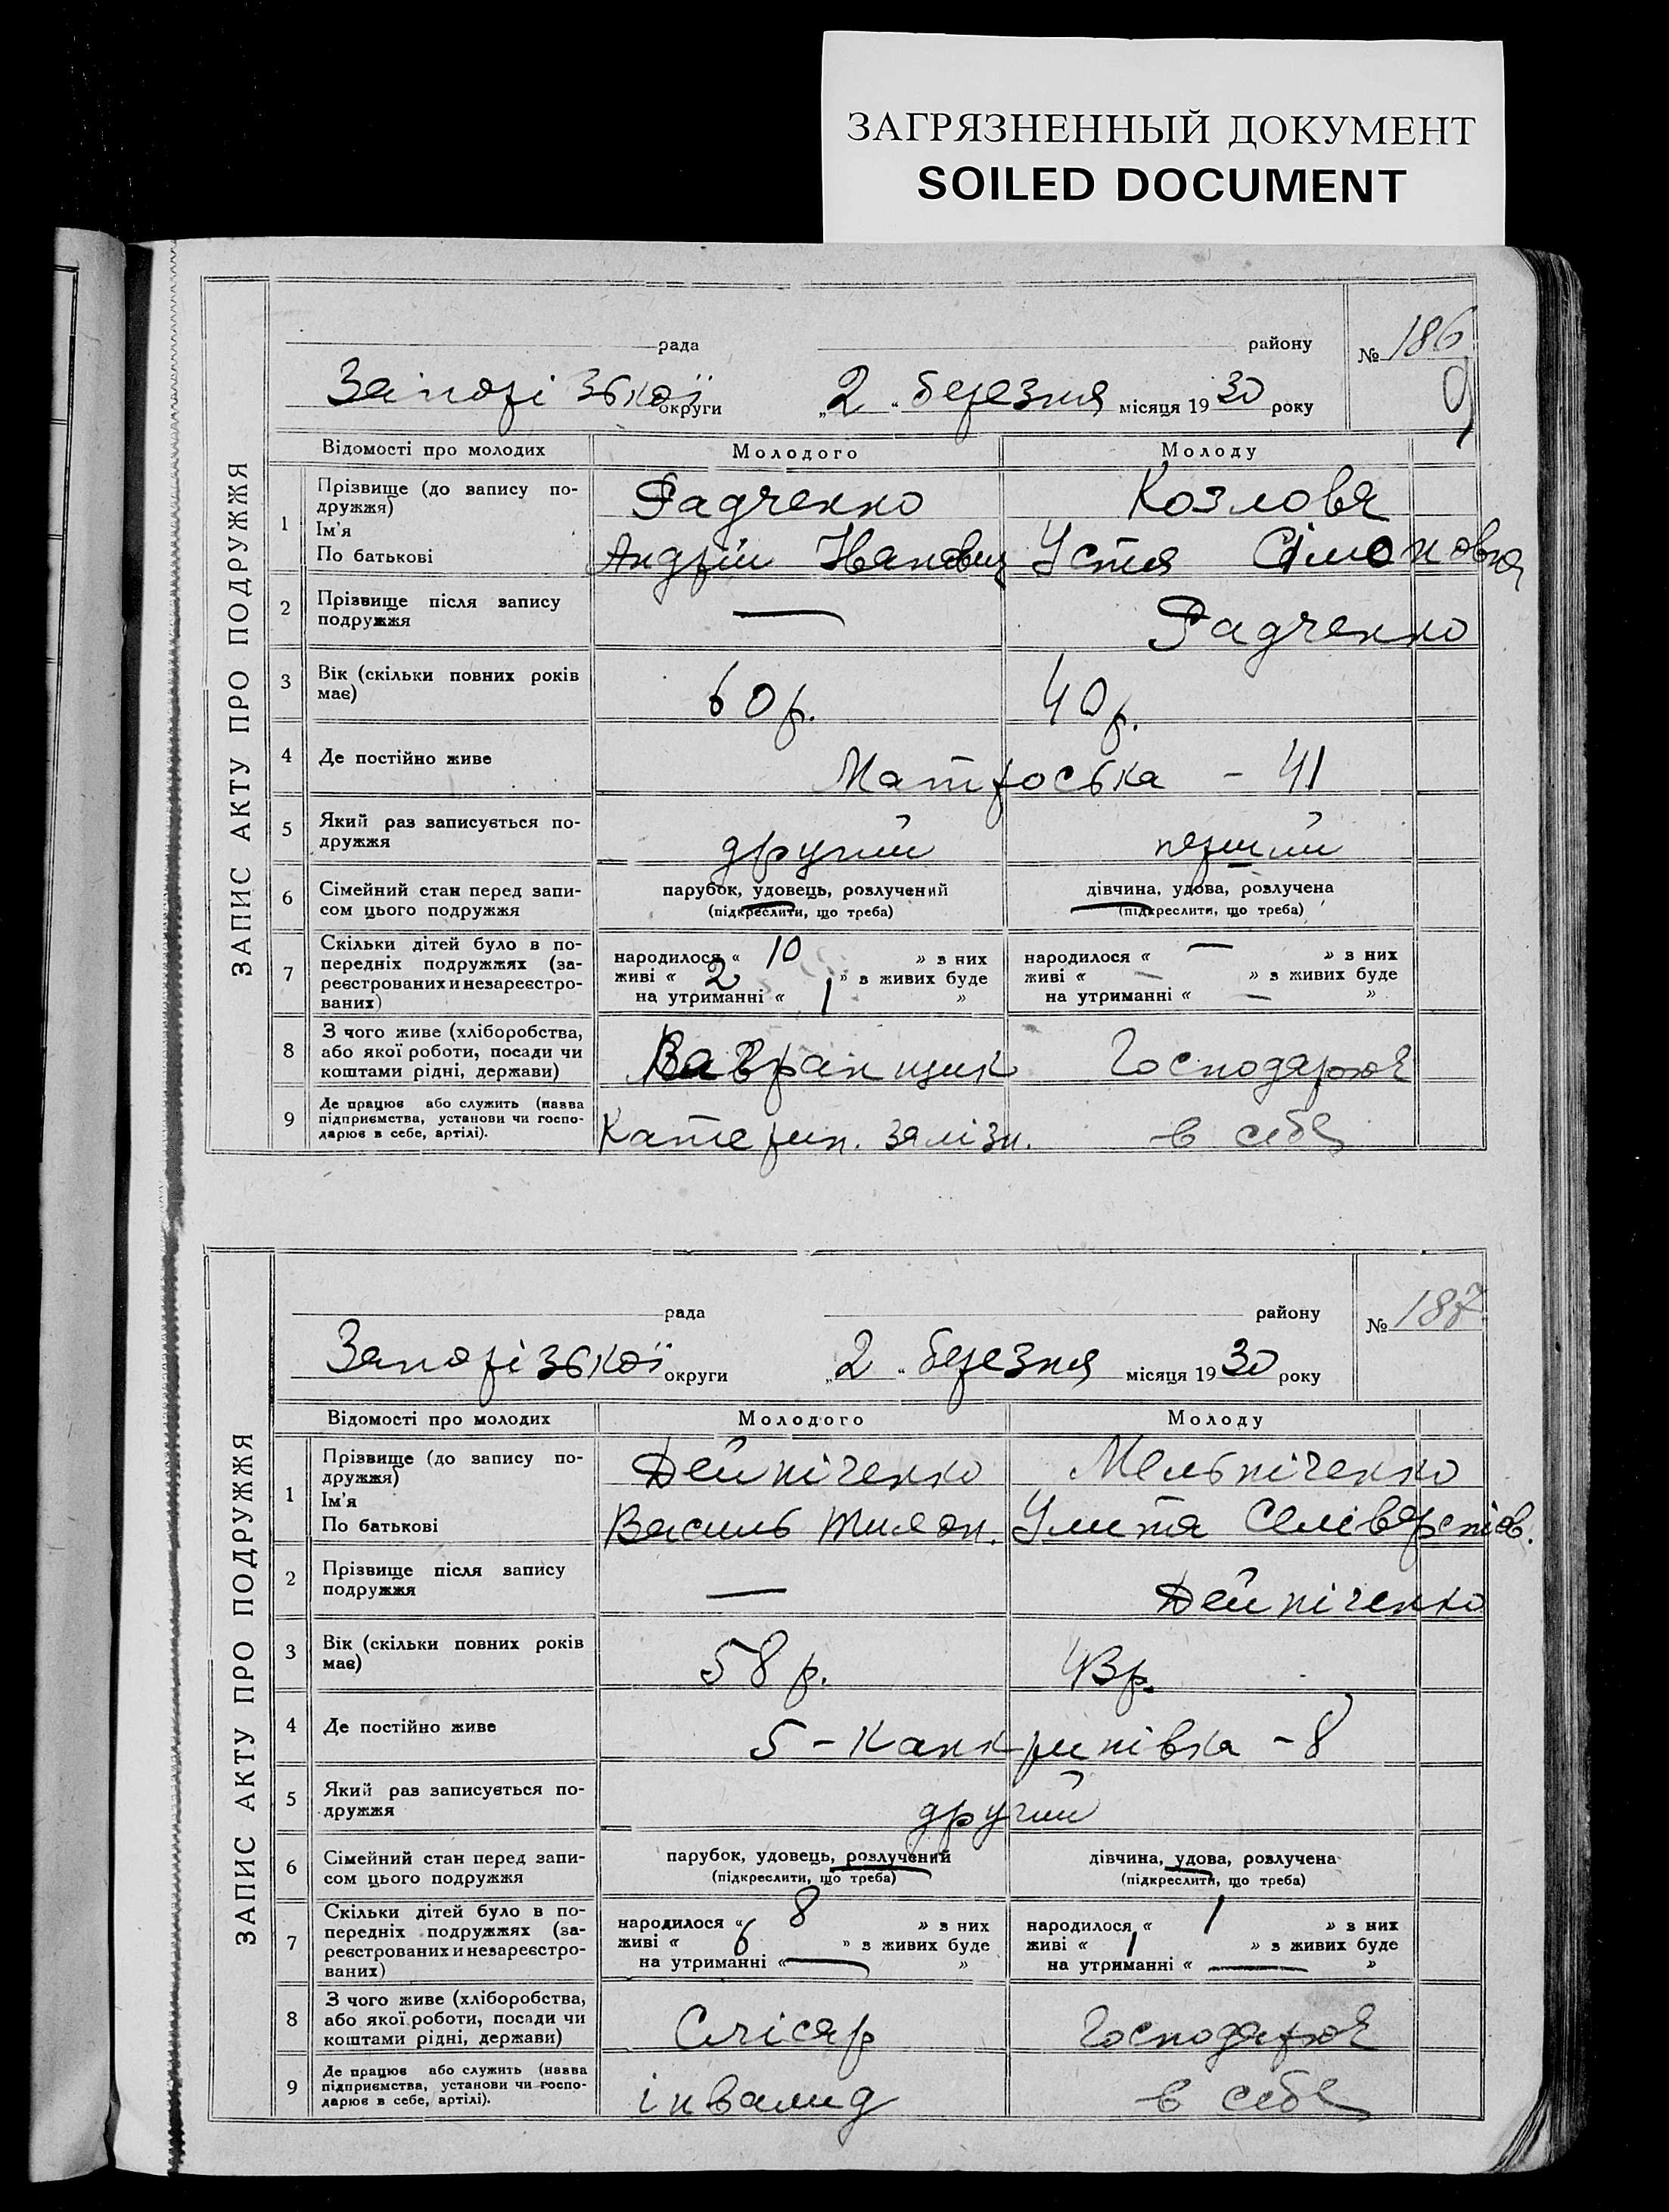 ЗАГРЯЗНЕННЫЙ ДОКУМЕНТ
SOILED DOCUMENT
ЗАПИС АКТУ ПРО ПОДРУЖЖЯ
рада району № 186
Запорізької округи „2“ березня місяця 1930 року
Відомості про молодих Молодого Молоду
1 Прізвище (до запису по-
дружжя) Радченко Козлова
Ім'я
По батькові Андрій Іванович Устя Сімоновна
2 Прізвище після запису
подружжя — Радченко
3 Вік (скільки повних років
має) 60 р. 40 р.
4 Де постійно живе Матроська - 41
5 Який раз записується по-
дружжя другий перший
6 Сімейний стан перед запи-
сом цього подружжя
парубок, удовець, розлучений дівчина, удова, розлучена
(підкреслити, що треба) (підкреслити, що треба)
7 Скільки дітей було в по-
передніх подружжях (за-
реєстрованих и незареєстро-
ваних)
народилося « 10 » з них народилося « — » з них
живі « 2 » з живих буде живі « — » з живих буде
на утриманні « 1 » на утриманні « — »
8 З чого живе (хліборобства,
або якої роботи, посади чи
коштами рідні, держави) Господарює
9 Де працює або служить (назва
підприємства, установи чи госпо-
дарює в себе, артілі). Катерин. залізн. в себе
ЗАПИС АКТУ ПРО ПОДРУЖЖЯ
рада району № 187
Запорізької округи „2“ березня місяця 1930 року
Відомості про молодих Молодого Молоду
1 Прізвище (до запису по-
дружжя) Дейніченко Мельніченко
Ім'я
По батькові Василь Улита Селіверстов.
2 Прізвище після запису
подружжя — Дейніченко
3 Вік (скільки повних років
має) 58 р. 43 р.
4 Де постійно живе 5 - Канкринівка - 8
5 Який раз записується по-
дружжя другий
6 Сімейний стан перед запи-
сом цього подружжя
парубок, удовець, розлучений дівчина, удова, розлучена
(підкреслити, що треба) (підкреслити, що треба)
7 Скільки дітей було в по-
передніх подружжях (за-
реєстрованих и незареєстро-
ваних)
народилося « 8 » з них народилося « 1 » з них
живі « 6 » з живих буде живі « 1 » з живих буде
на утриманні « — » на утриманні « — »
8 З чого живе (хліборобства,
або якої роботи, посади чи
коштами рідні, держави) Слісар Господарює
9 Де працює або служить (назва
підприємства, установи чи госпо-
дарює в себе, артілі). інвалид в себе